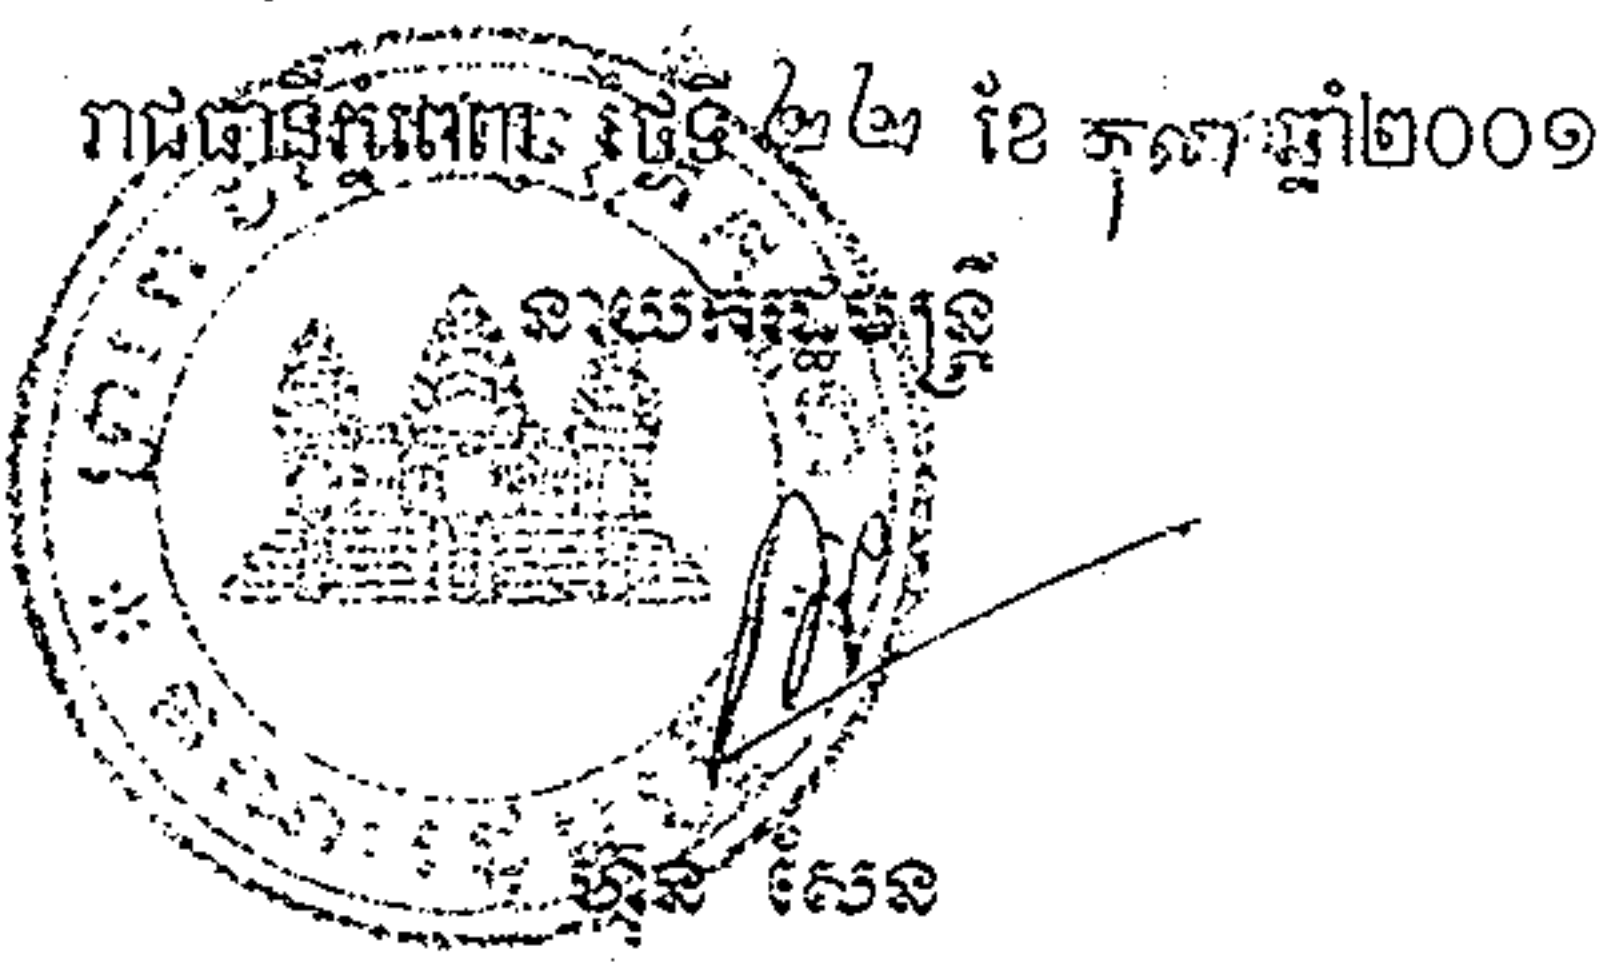 រាជធានីភ្នំពេញ ថ្ងៃទី ២២ ខែ តុលា ឆ្នាំ២០០១
នាយករដ្ឋមន្ត្រី
ហ៊ុន សែន